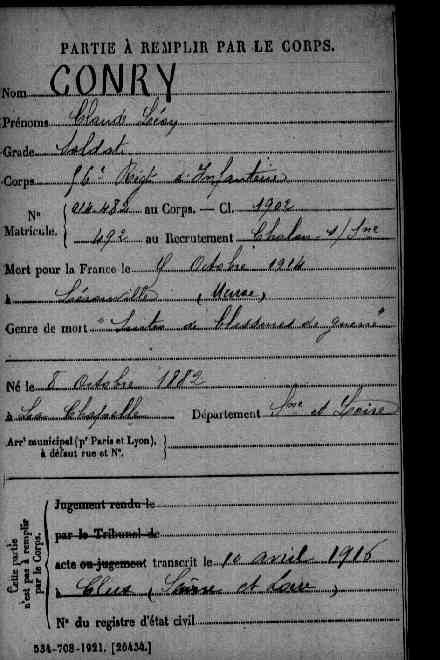 PARTIE À REMPLIR PAR LE CORPS.
Nom CONRY
Prénoms Claude
Grade Soldat
Corps 56e Régt d'Infanterie
N° Matricule. 014.482 au Corps. — Cl. 1902
492 au Recrutement Chalon s/ Sne
Mort pour la France le Octobre 1914
à (Meuse)
Genre de mort "Suites de blessures de guerre"
Né le 8 Octobre 1882
à La Chapelle Département Sne et Loire
Arrt municipal (pr Paris et Lyon),
à défaut rue et N°.
Cette partie n'est pas à remplir par le Corps.
Jugement rendu le
par le Tribunal de
acte ou jugement transcrit le 10 avril 1916
à (Saône et Loire)
N° du registre d'état civil
534-708-1921. [26434.]